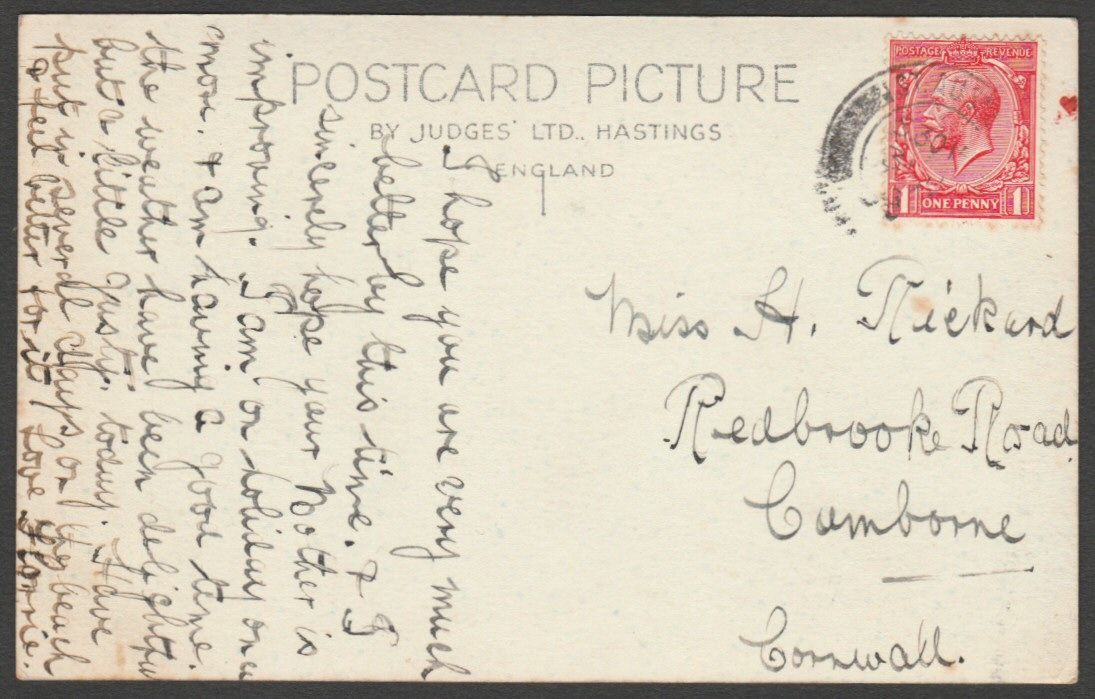 POSTCARD PICTURE
BY JUDGES' LTD., HASTINGS
ENGLAND
POSTAGE REVENUE
1 ONE PENNY 1
I hope you are very much
better by this time. & I
sincerely hope your Mother is
improving. I am on holiday once
more. & am having a good time.
the weather have been delightful
but a little gusty, today. Have
put in several days on the beach
& feel better for it. Love
Florrie.
Miss H. Rickard
Redbrooke Road
Camborne
Cornwall.